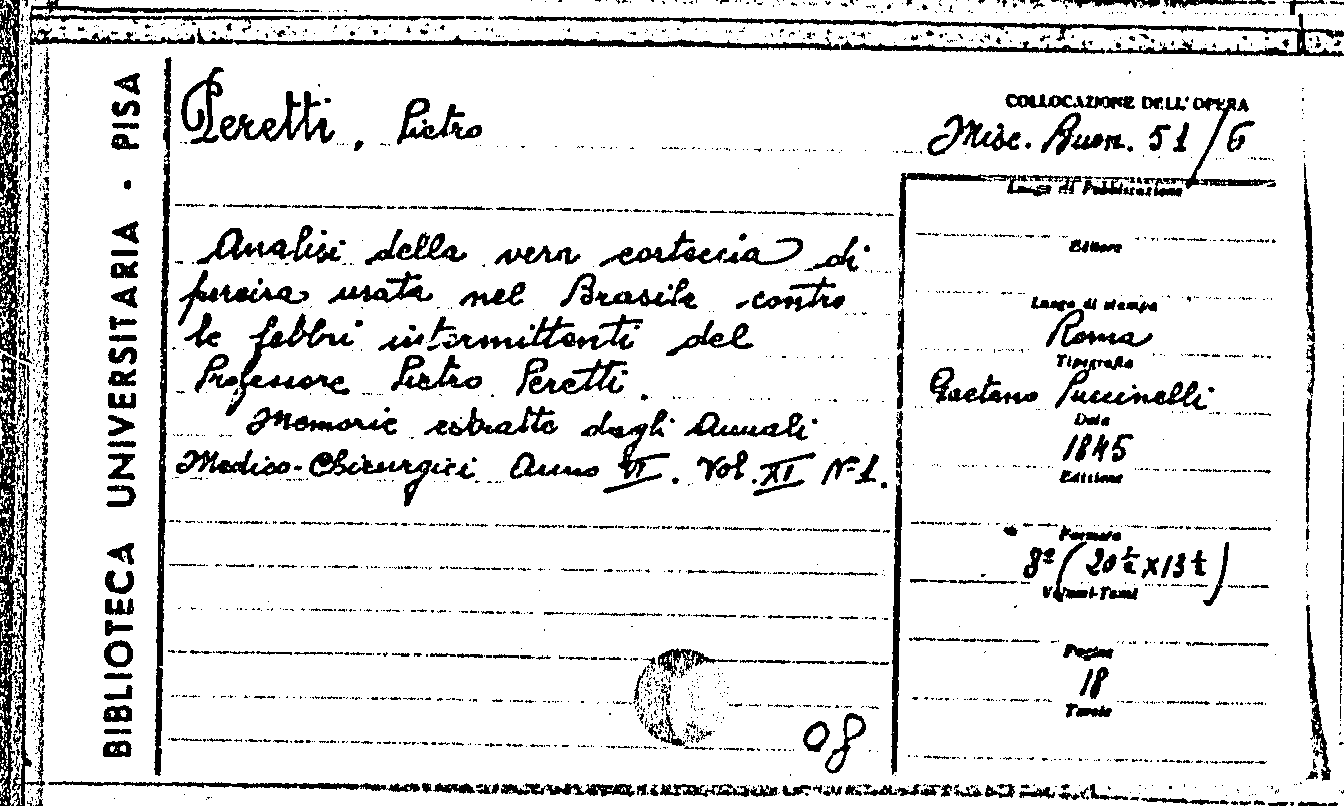 BIBLIOTECA UNIVERSITARIA · PISA
Peretti, Pietro
COLLOCAZIONE DELL'OPERA
Misc. Buon. 51/6
Analisi della vera corteccia di
pereira usata nel Brasile contro
le febbri intermittenti del
Professore Pietro Peretti.
Memorie estratte dagli Annali
Medico-Chirurgici Anno VI. Vol. XI N.1.
08
Luogo di Pubblicazione
Editore
Luogo di stampa
Roma
Tipografia
Gaetano Puccinelli
Data
1845
Edizione
Formato
8º (20 ½ x 13 ½)
Volumi-Tomi
Pagine
18
Tavole